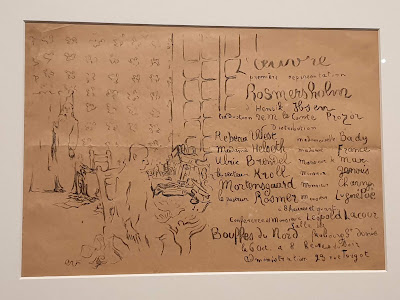 L'œuvre
première représentation
Rosmersholm
Henrik Ibsen
traduction de M. le Comte Prozor
Distribution
Rebecca West mademoiselle Bady
Madame Helseth madame France
Ulric Brendel monsieur
Kroll monsieur
Mortensgaard monsieur Charmen
Rosmer monsieur Lugné Poe
Conférence de Monsieur Léopold Lacour
Salle
Bouffes du Nord faubourg St Denis
le 6 Oct. à 8
Administration 23 rue Turgot